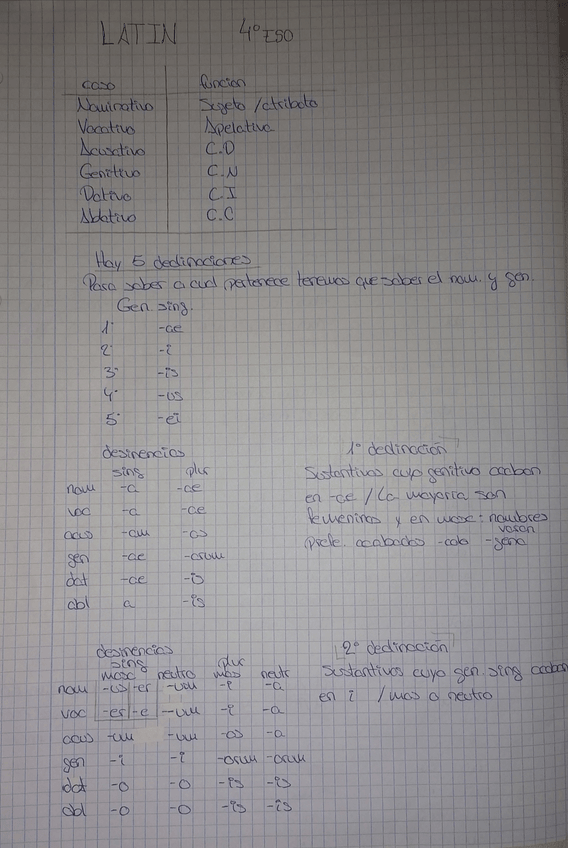 LATIN 4º ESO
caso función
Nominativo Sujeto / atributo
Vocativo Apelativa
Acusativo C.D
Genitivo C.N
Dativo C.I
Ablativo C.C
Hay 5 declinaciones
Para saber a cual pertenece tenemos que saber el nom. y gen.
Gen. sing.
1º -ae
2º -i
3º -is
4º -us
5º -ei
desinencias 1º declinación
sing plur Sustantivos cuyo genitivo acaban
nom -a -ae en -ae / La mayoria son
voc -a -ae femeninos y en masc: nombres
acus -am -as varon
gen -ae -arum profe. acabados -cola -gena
dat -ae -is
abl a -is
desinencias 2º declinación
sing plur
masc neutro mas neutr Sustantivos cuyo gen. sing acaban
nom -us -er -um -i -a en i / mas o neutro
voc -er -e -um -i -a
acus -um -um -os -a
gen -i -i -orum -orum
dat -o -o -is -is
abl -o -o -is -is